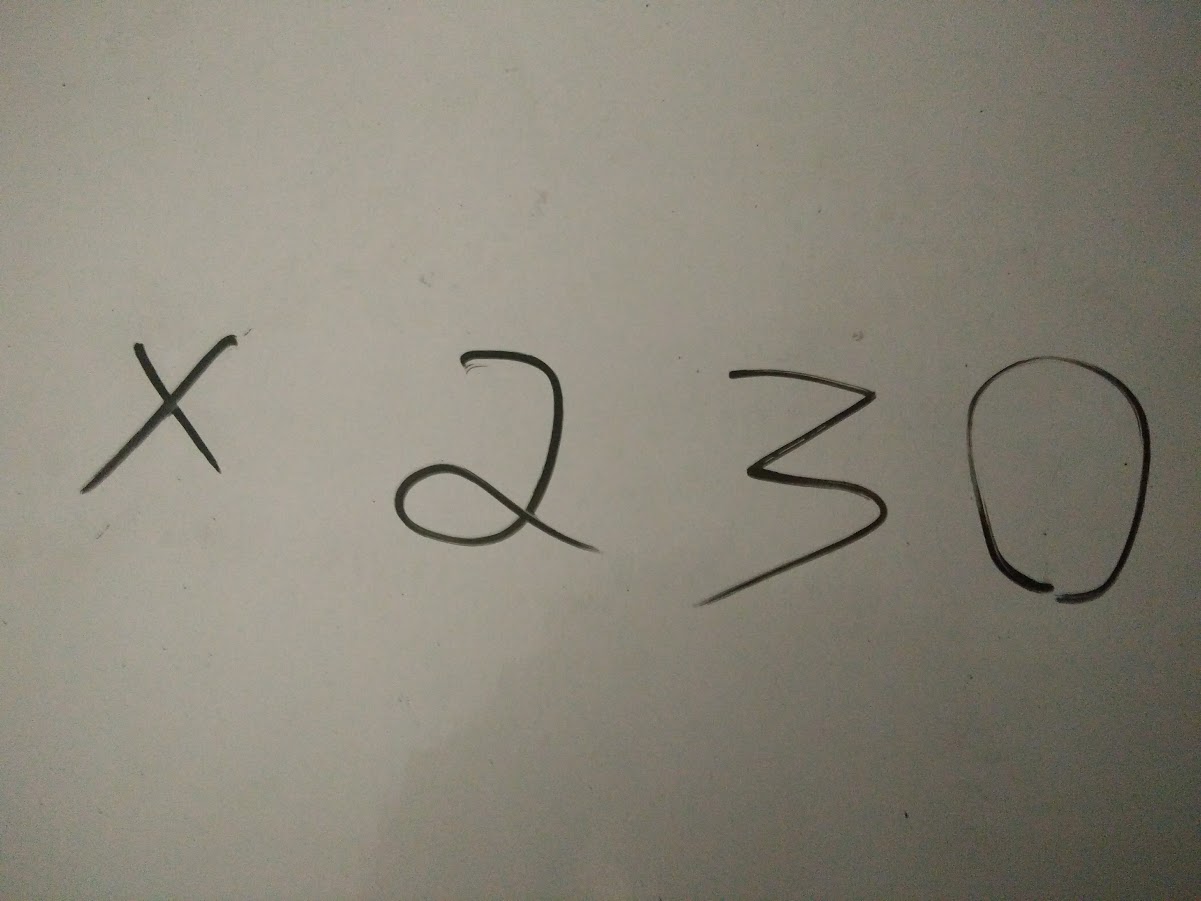 x 230